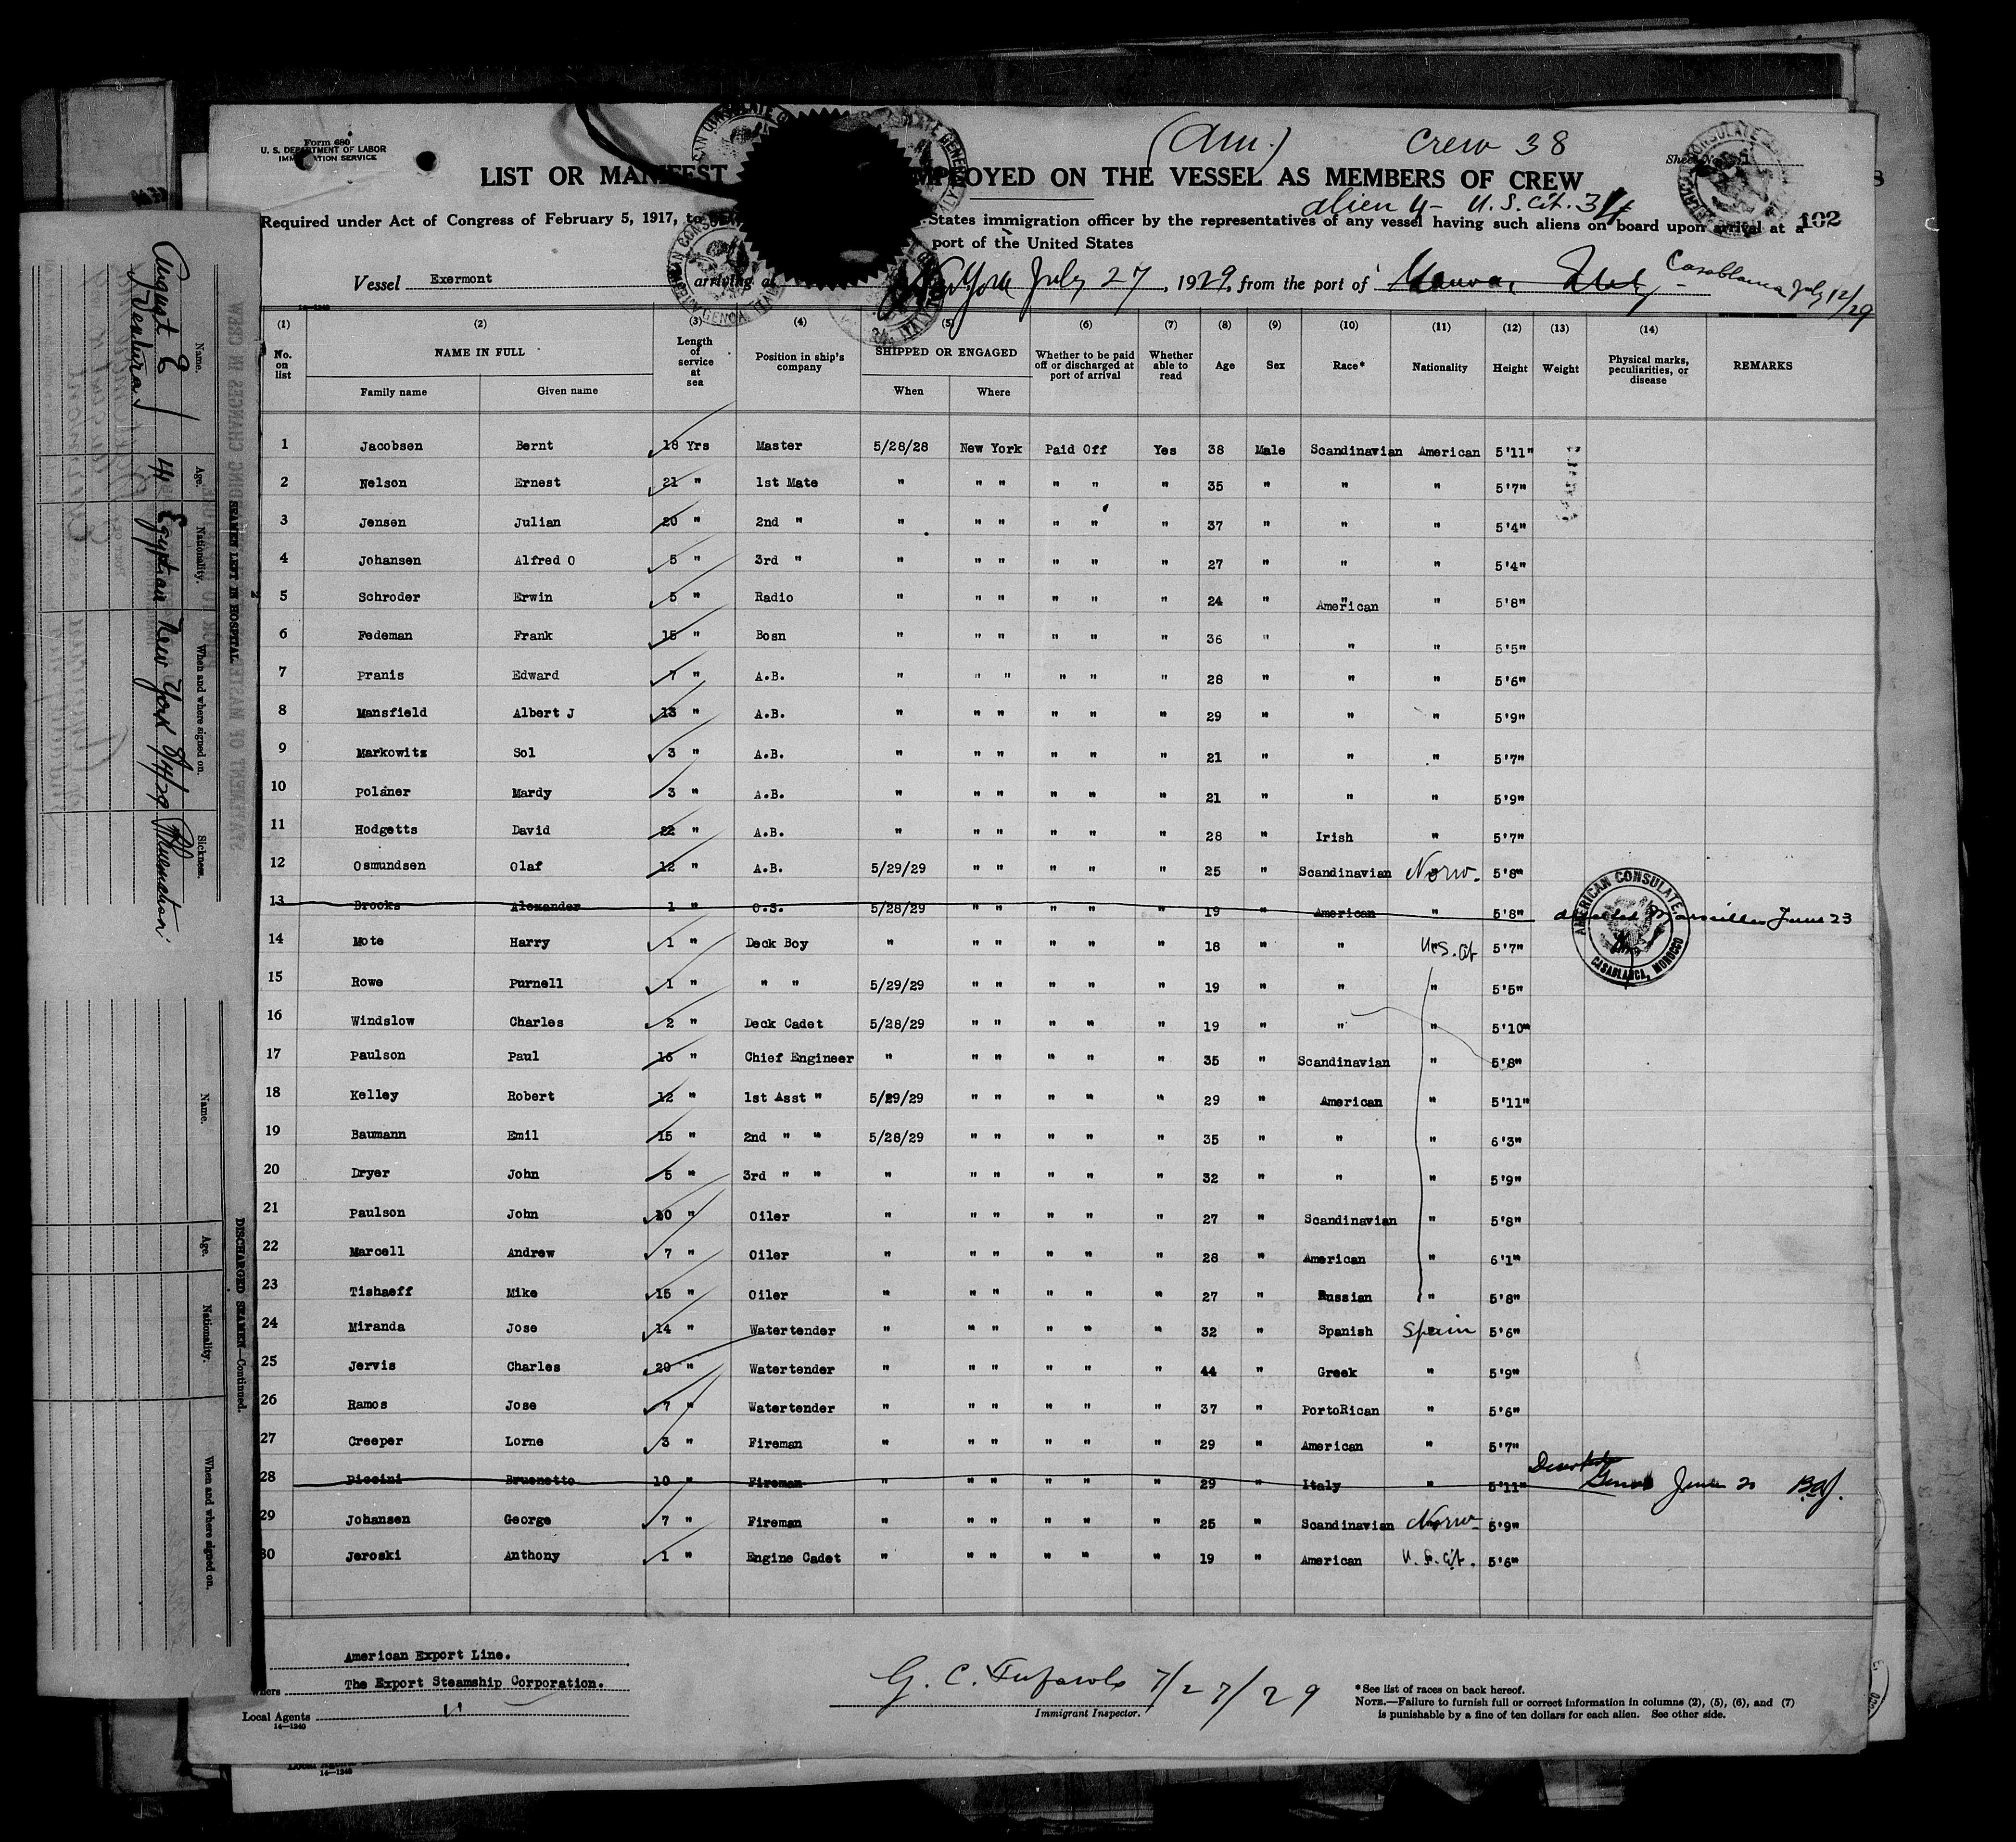 Form 680
U. S. DEPARTMENT OF LABOR
IMMIGRATION SERVICE
(Am.)
Crew 38
Sheet No.
LIST OR MANIFEST EMPLOYED ON THE VESSEL AS MEMBERS OF CREW
alien 4 - U.S. Cit. 34
102
Required under Act of Congress of February 5, 1917, to States immigration officer by the representatives of any vessel having such aliens on board upon arrival at a
port of the United States
Vessel Exermont arriving at New York July 27, 1929, from the port of Genoa, Italy - Casablanca July 12/29
14-1240
(1) (2) (3) (4) (5) (6) (7) (8) (9) (10) (11) (12) (13) (14)
No. on list NAME IN FULL Length of service at sea Position in ship's company SHIPPED OR ENGAGED Whether to be paid off or discharged at port of arrival Whether able to read Age Sex Race* Nationality Height Weight Physical marks, peculiarities, or disease REMARKS
Family name Given name When Where
1 Jacobsen Bernt 18 Yrs Master 5/28/28 New York Paid Off Yes 38 Male Scandinavian American 5'11"
2 Nelson Ernest 21 " 1st Mate " " " " " " 35 " " " 5'7"
3 Jensen Julian 20 " 2nd " " " " " " " 37 " " " 5'4"
4 Johansen Alfred O 5 " 3rd " " " " " " " 27 " " " 5'4"
5 Schroder Erwin 5 " Radio " " " " " " 24 " " American " 5'8"
6 Fedeman Frank 15 " Bosn " " " " " " 36 " " " 5'5"
7 Pranis Edward 7 " A.B. " " " " " " 28 " " " 5'6"
8 Mansfield Albert J 13 " A.B. " " " " " " 29 " " " 5'9"
9 Markowitz Sol 3 " A.B. " " " " " " 21 " " " 5'7"
10 Polaner Mardy 3 " A.B. " " " " " " 21 " " " 5'9"
11 Hodgetts David 22 " A.B. " " " " " " 28 " Irish " 5'7"
12 Osmundsen Olaf 12 " A.B. 5/29/29 " " " " " 25 " Scandinavian Norw. 5'8"
13 Brooks Alexander 1 " O.S. 5/28/29 " " " " " 19 " American " 5'8" deserted Marseilles June 23
14 Mote Harry 1 " Deck Boy " " " " " " 18 " " U.S. Cit 5'7"
15 Rowe Purnell 1 " " " 5/29/29 " " " " " 19 " " " 5'5"
16 Windslow Charles 2 " Deck Cadet 5/28/29 " " " " " 19 " " " 5'10"
17 Paulson Paul 16 " Chief Engineer " " " " " " 35 " Scandinavian " 5'8"
18 Kelley Robert 12 " 1st Asst " 5/29/29 " " " " " 29 " American " 5'11"
19 Baumann Emil 15 " 2nd " " 5/28/29 " " " " " 35 " " " 6'3"
20 Dryer John 5 " 3rd " " " " " " " " 32 " " " 5'9"
21 Paulson John 10 " Oiler " " " " " " 27 " Scandinavian " 5'8"
22 Marcell Andrew 7 " Oiler " " " " " " 28 " American " 6'1"
23 Tishaeff Mike 15 " Oiler " " " " " " 27 " Russian " 5'8"
24 Miranda Jose 14 " Watertender " " " " " " 32 " Spanish Spain 5'6"
25 Jervis Charles 20 " Watertender " " " " " " 44 " Greek " 5'9"
26 Ramos Jose 7 " Watertender " " " " " " 37 " PortoRican " 5'6"
27 Creeper Lorne 3 " Fireman " " " " " " 29 " American " 5'7"
28 Piccini Bruenetto 10 " Fireman " " " " " " 29 " Italy " 5'11" Deserted Genoa June 20
29 Johansen George 7 " Fireman " " " " " " 25 " Scandinavian Norw- 5'9"
30 Jeroski Anthony 1 " Engine Cadet " " " " " " 19 " American U.S. Cit. 5'6"
AMERICAN CONSULATE, CASABLANCA, MOROCCO
American Export Line.
The Export Steamship Corporation.
Local Agents "
14-1240
G. C. 7/27/29
Immigrant Inspector.
*See list of races on back hereof.
NOTE.—Failure to furnish full or correct information in columns (2), (5), (6), and (7)
is punishable by a fine of ten dollars for each alien. See other side.
SEAMEN LEFT IN HOSPITAL
Name. Age. Nationality. When and where signed on. Sickness.
August E Ventura 41 Egyptian New York
DISCHARGED SEAMEN—Continued.
Name. Age. Nationality. When and where signed on.